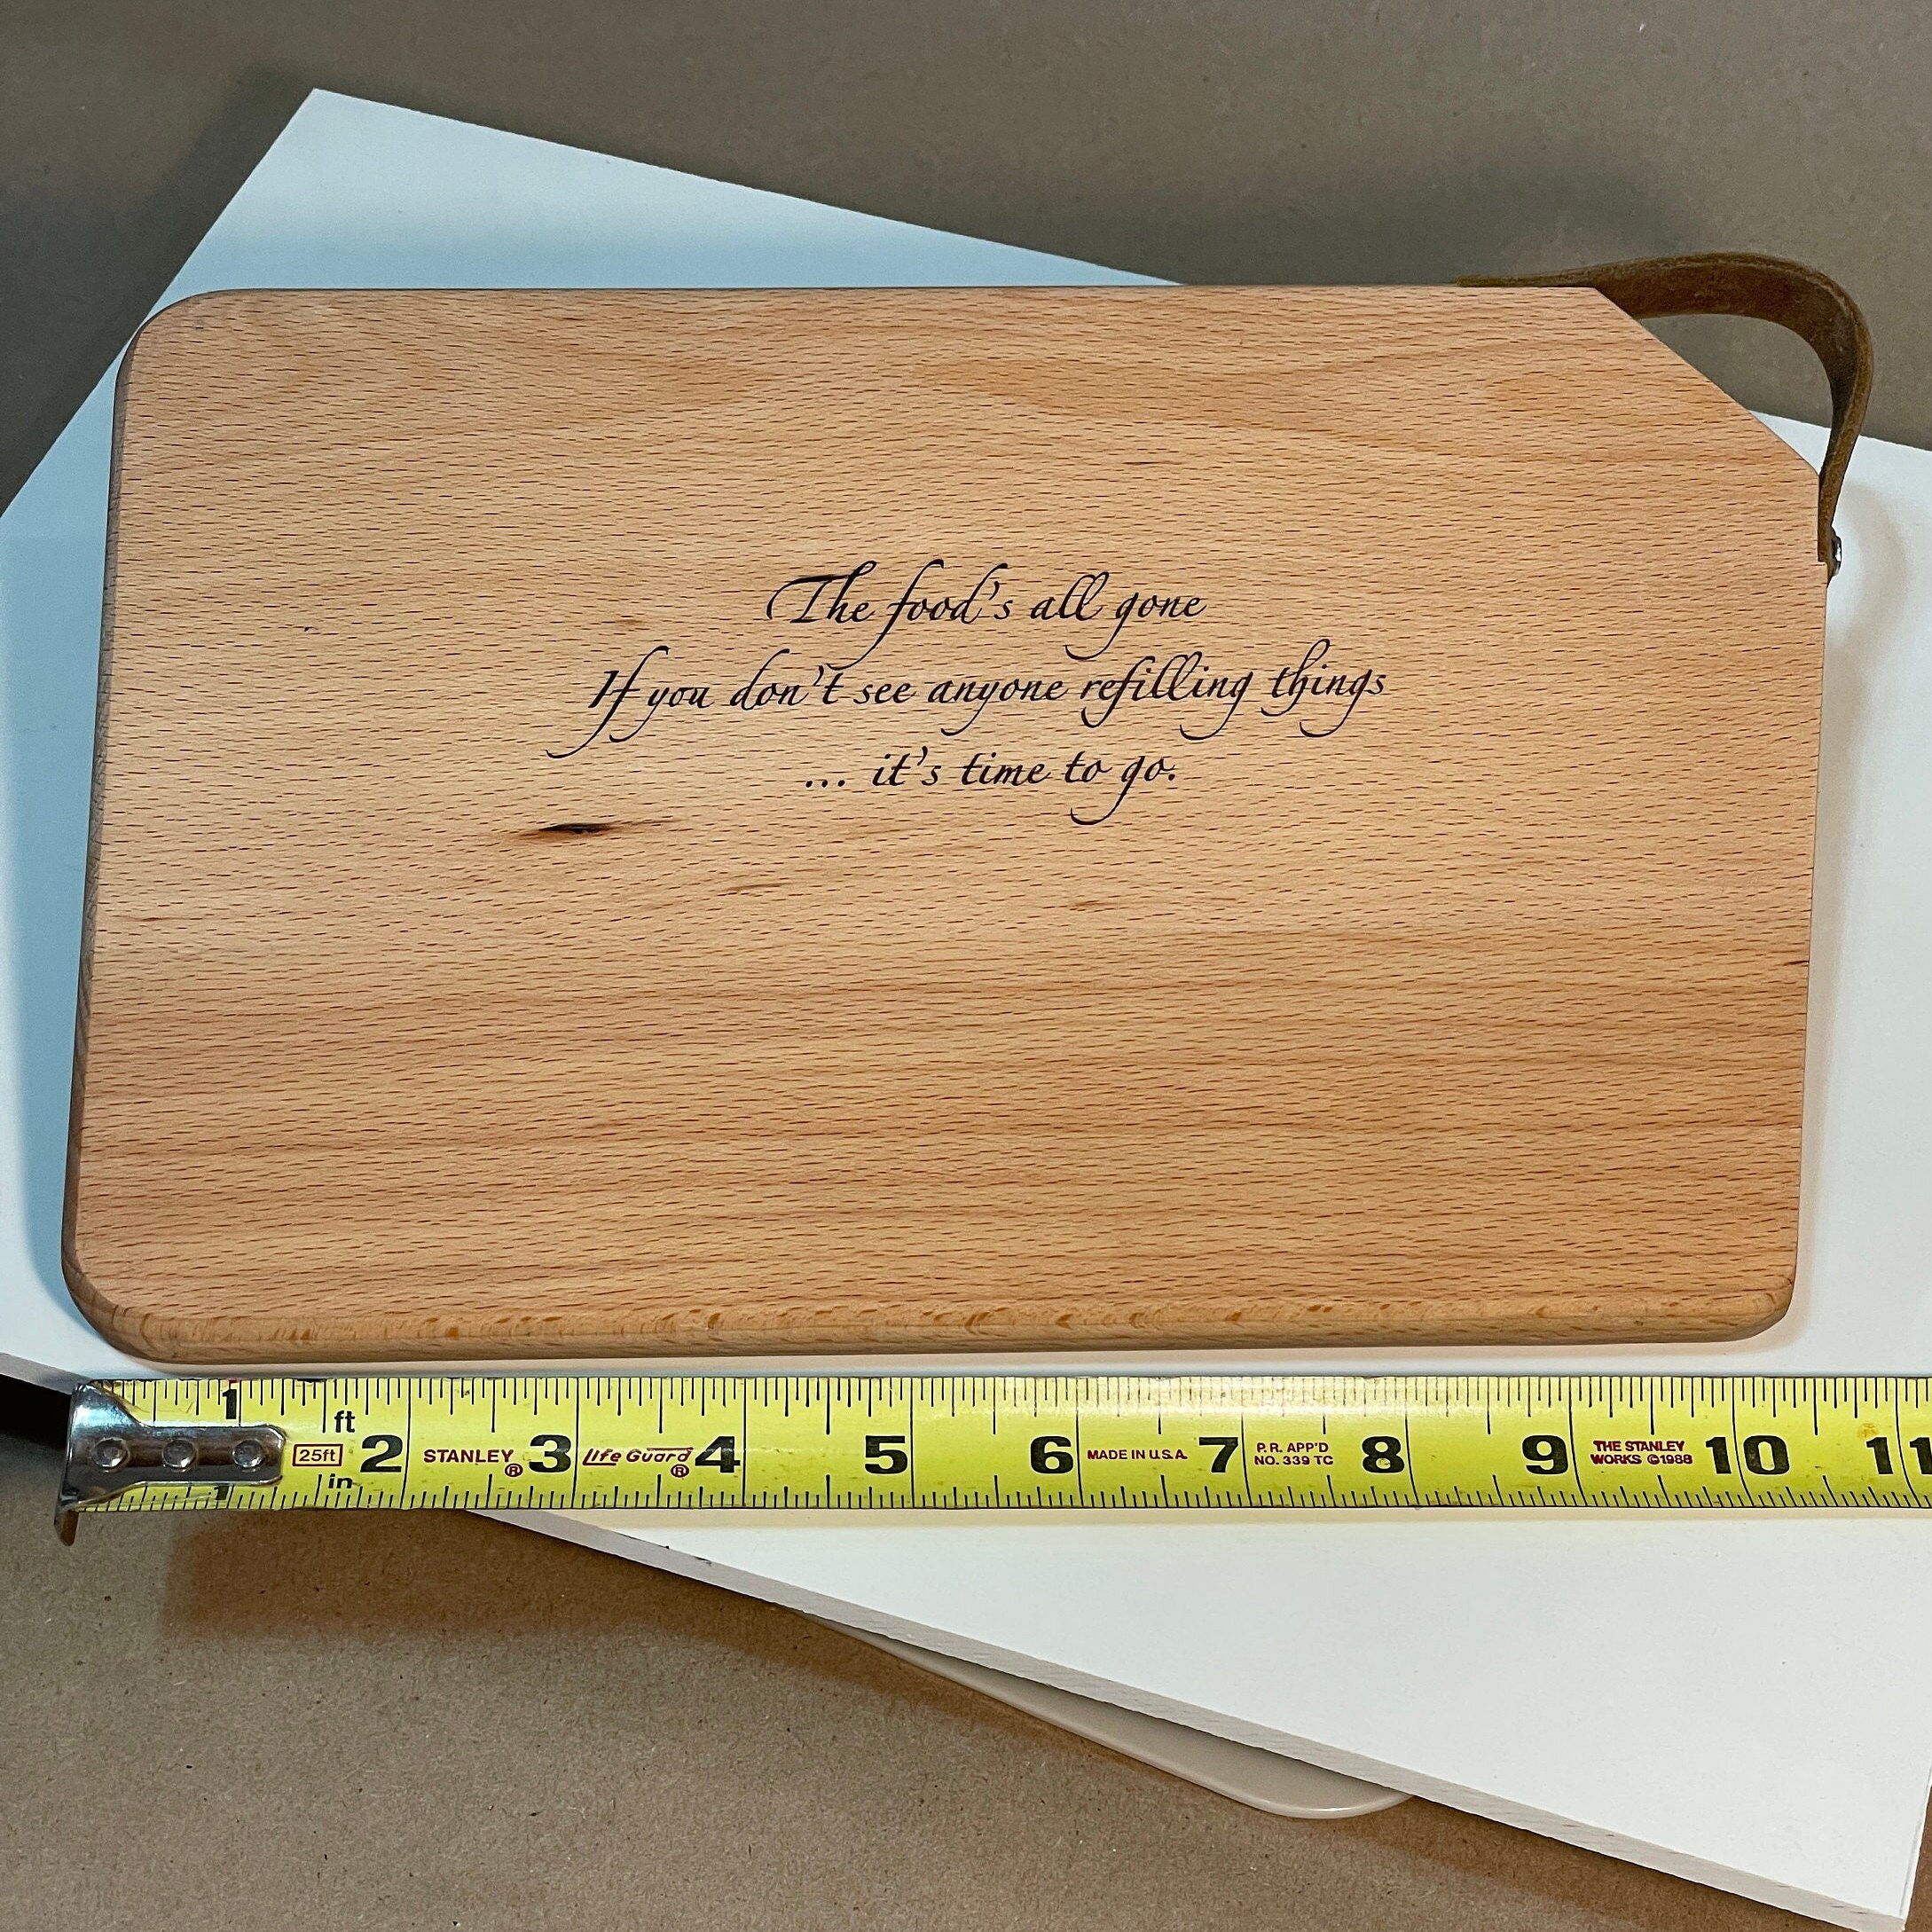 The food's all gone
If you don't see anyone refilling things
... it's time to go.
1 ft 2 3 4 5 6 7 8 9 10 11
25ft STANLEY® Life Guard® MADE IN U.S.A. P.R. APP'D THE STANLEY
in NO. 339 TC WORKS ©1988
1